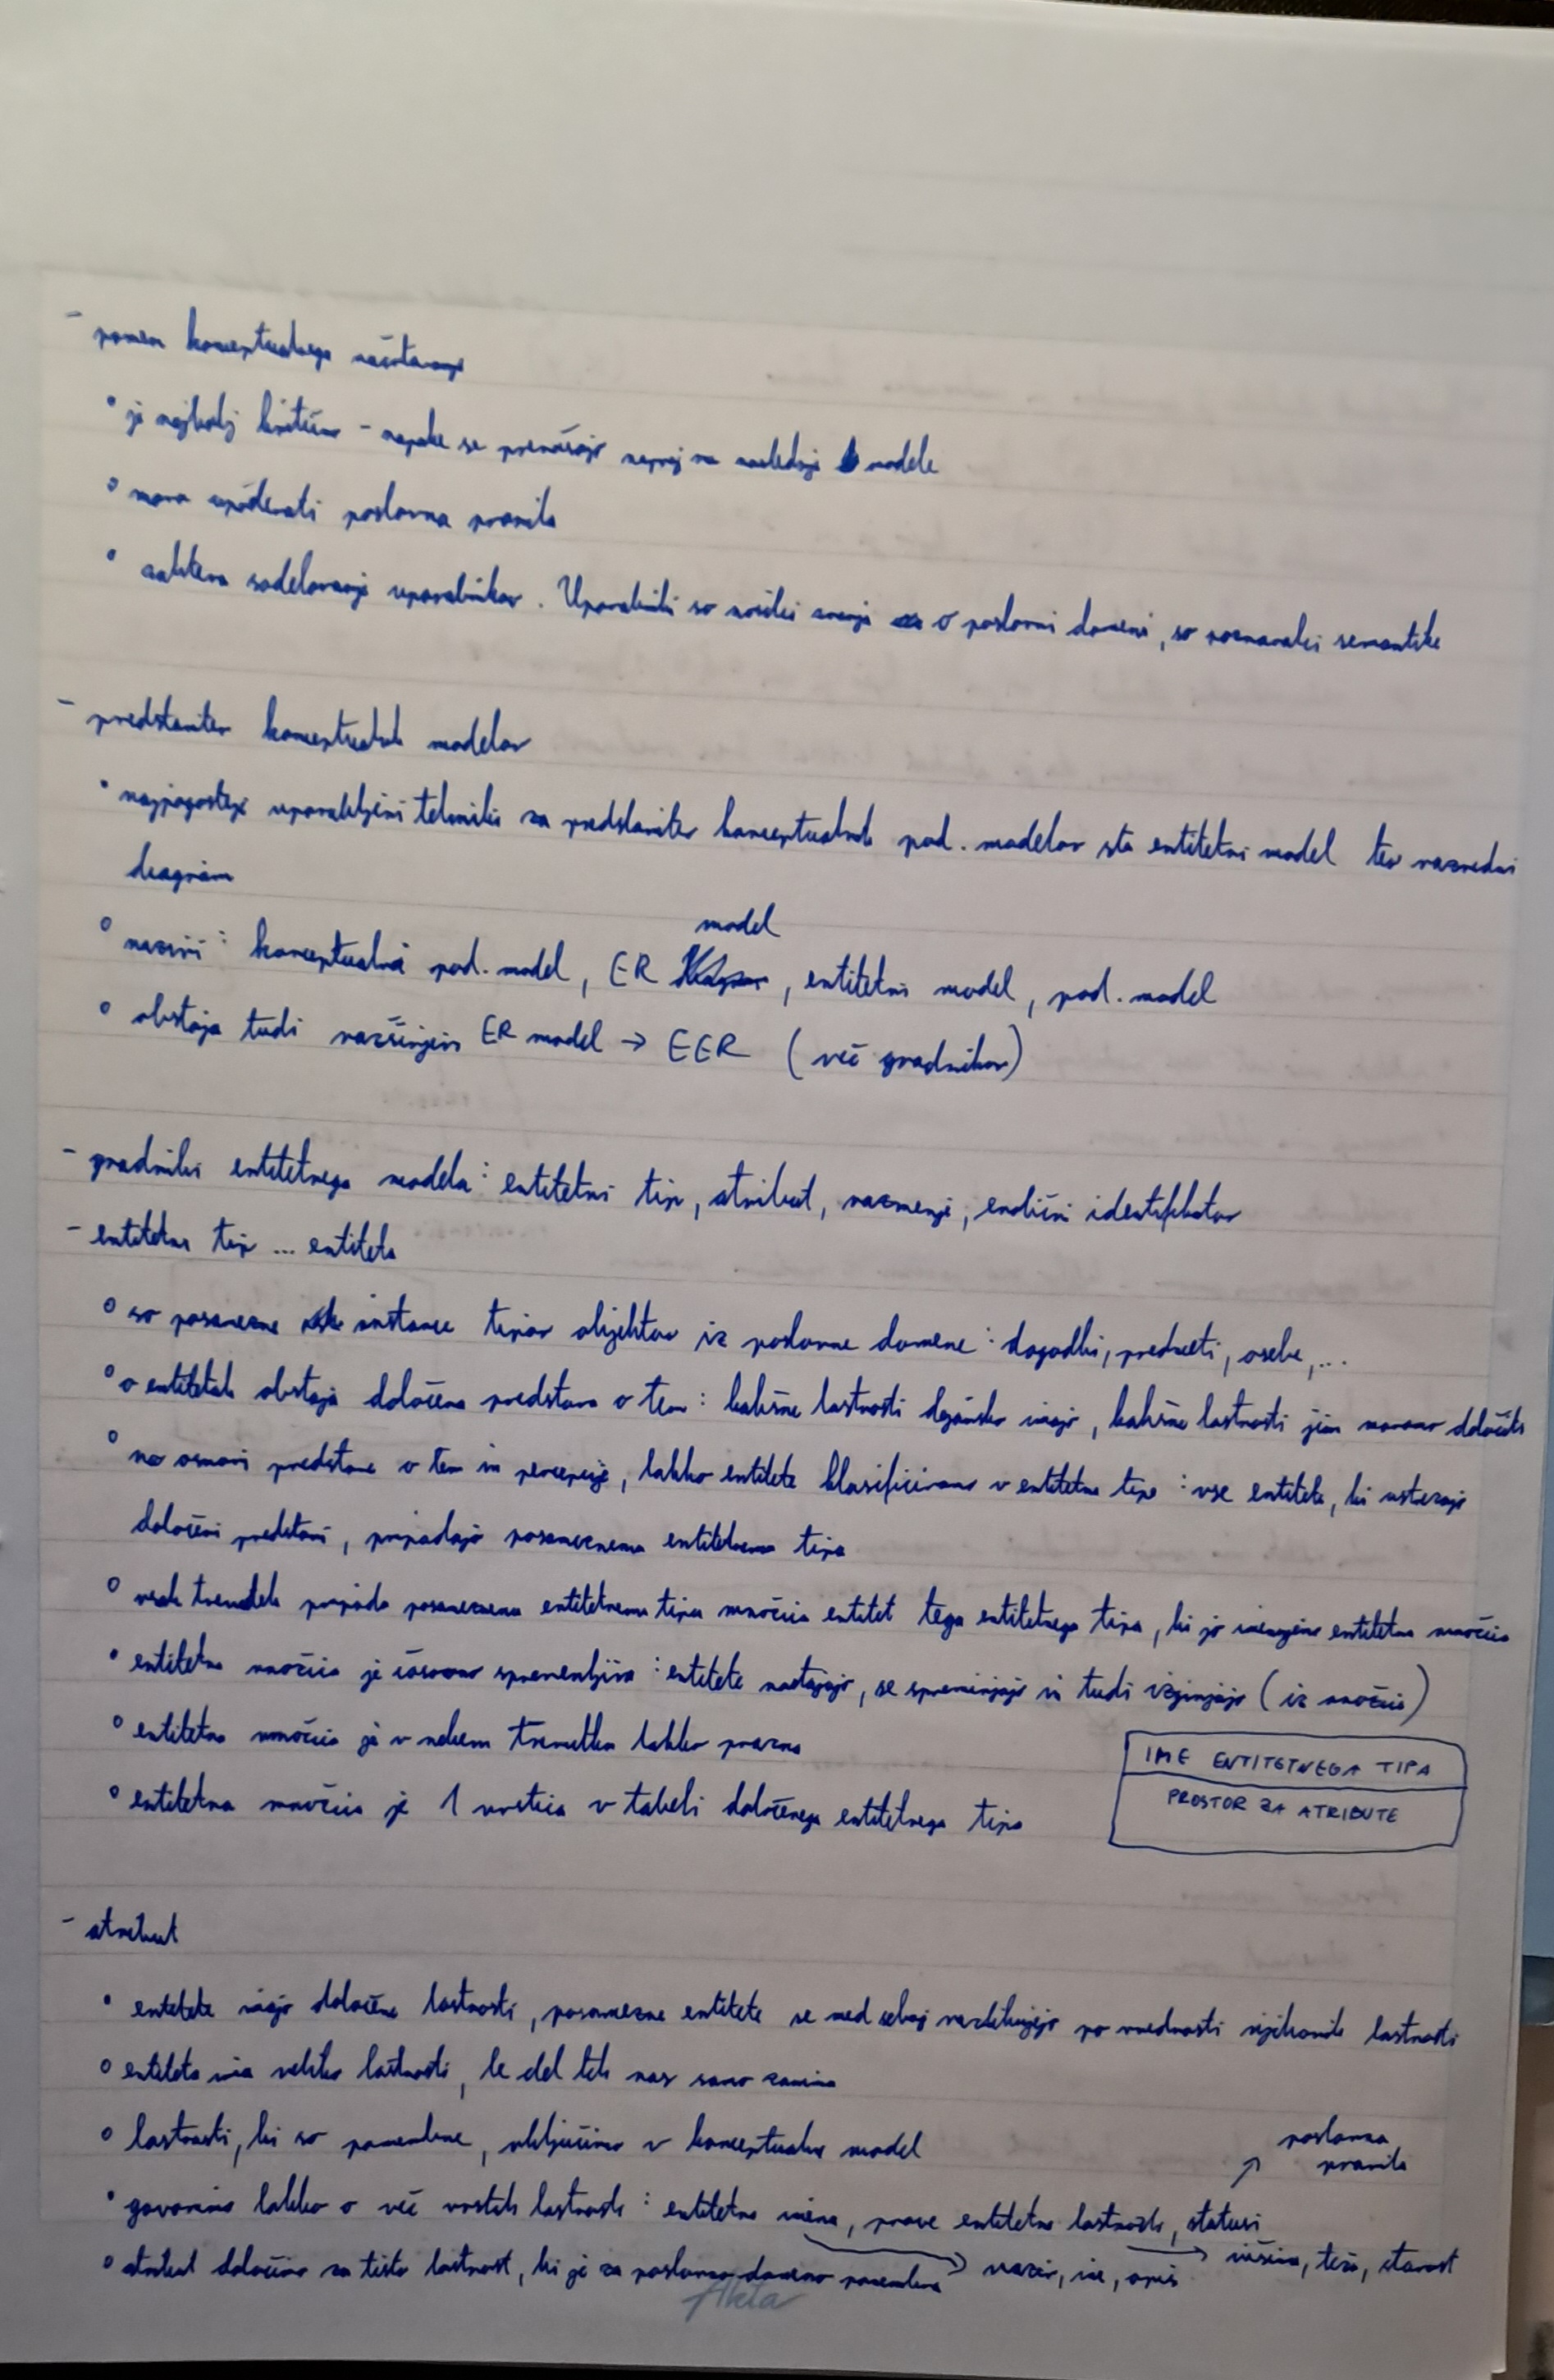 - pomen konceptualnega načrtovanja
° je najbolj kritično - napake se prenašajo naprej na naslednje modele
° mora upoštevati poslovna pravila
° zahteva sodelovanje uporabnikov. Uporabniki so nosilci znanja o poslovni domeni, so poznavalci semantike
- predstavitev konceptualnih modelov
° najpogosteje uporabljeni tehniki za predstavitev konceptualnih pod. modelov sta entitetni model ter razredni
diagram
model
° nazivi: konceptualni pod. model, ER , entitetni model, pod. model
° obstaja tudi razširjeni ER model → EER (več gradnikov)
- gradniki entitetnega modela: entitetni tip, atribut, razmerje, enolični identifikator
- entitetni tip ... entiteta
° so posamezne instance tipov objektov iz poslovne domene: dogodki, predmeti, osebe, ...
° o entitetah obstaja določena predstava o tem: kakšne lastnosti dejansko imajo, kakšne lastnosti jim moramo določiti
° na osnovi predstave o tem in percepcije, lahko entitete klasificiramo v entitetne tipe: vse entitete, ki ustrezajo
določeni predstavi, pripadajo posameznemu entitetnemu tipu
° vsak trenutek pripada posameznemu entitetnemu tipu množica entitet tega entitetnega tipa, ki jo imenujemo entitetna množica
° entitetna množica je časovno spremenljiva: entitete nastajajo, se spreminjajo in tudi izginjajo (iz množice)
° entitetna množica je v nekem trenutku lahko prazna
IME ENTITETNEGA TIPA
PROSTOR ZA ATRIBUTE
° entitetna množica je 1 vrstica v tabeli določenega entitetnega tipa
- atribut
° entitete imajo določene lastnosti, posamezne entitete se med seboj razlikujejo po vrednosti njihovih lastnosti
° entiteta ima veliko lastnosti, le del teh nas samo zanima
° lastnosti, ki so pomembne, vključimo v konceptualni model
poslovna
↗ pravila
° govorimo lahko o več vrstah lastnosti: entitetna imena, prave entitetne lastnosti, statusi
° atribut določimo za tisto lastnost, ki je za poslovno domeno pomembna → naziv, ime, opis → višina, teža, starost
Akta